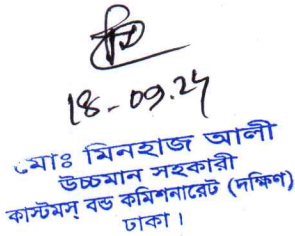 18-09.24
মোঃ মিনহাজ আলী
উচ্চমান সহকারী
কাস্টমস্ বন্ড কমিশনারেট (দক্ষিণ)
ঢাকা।